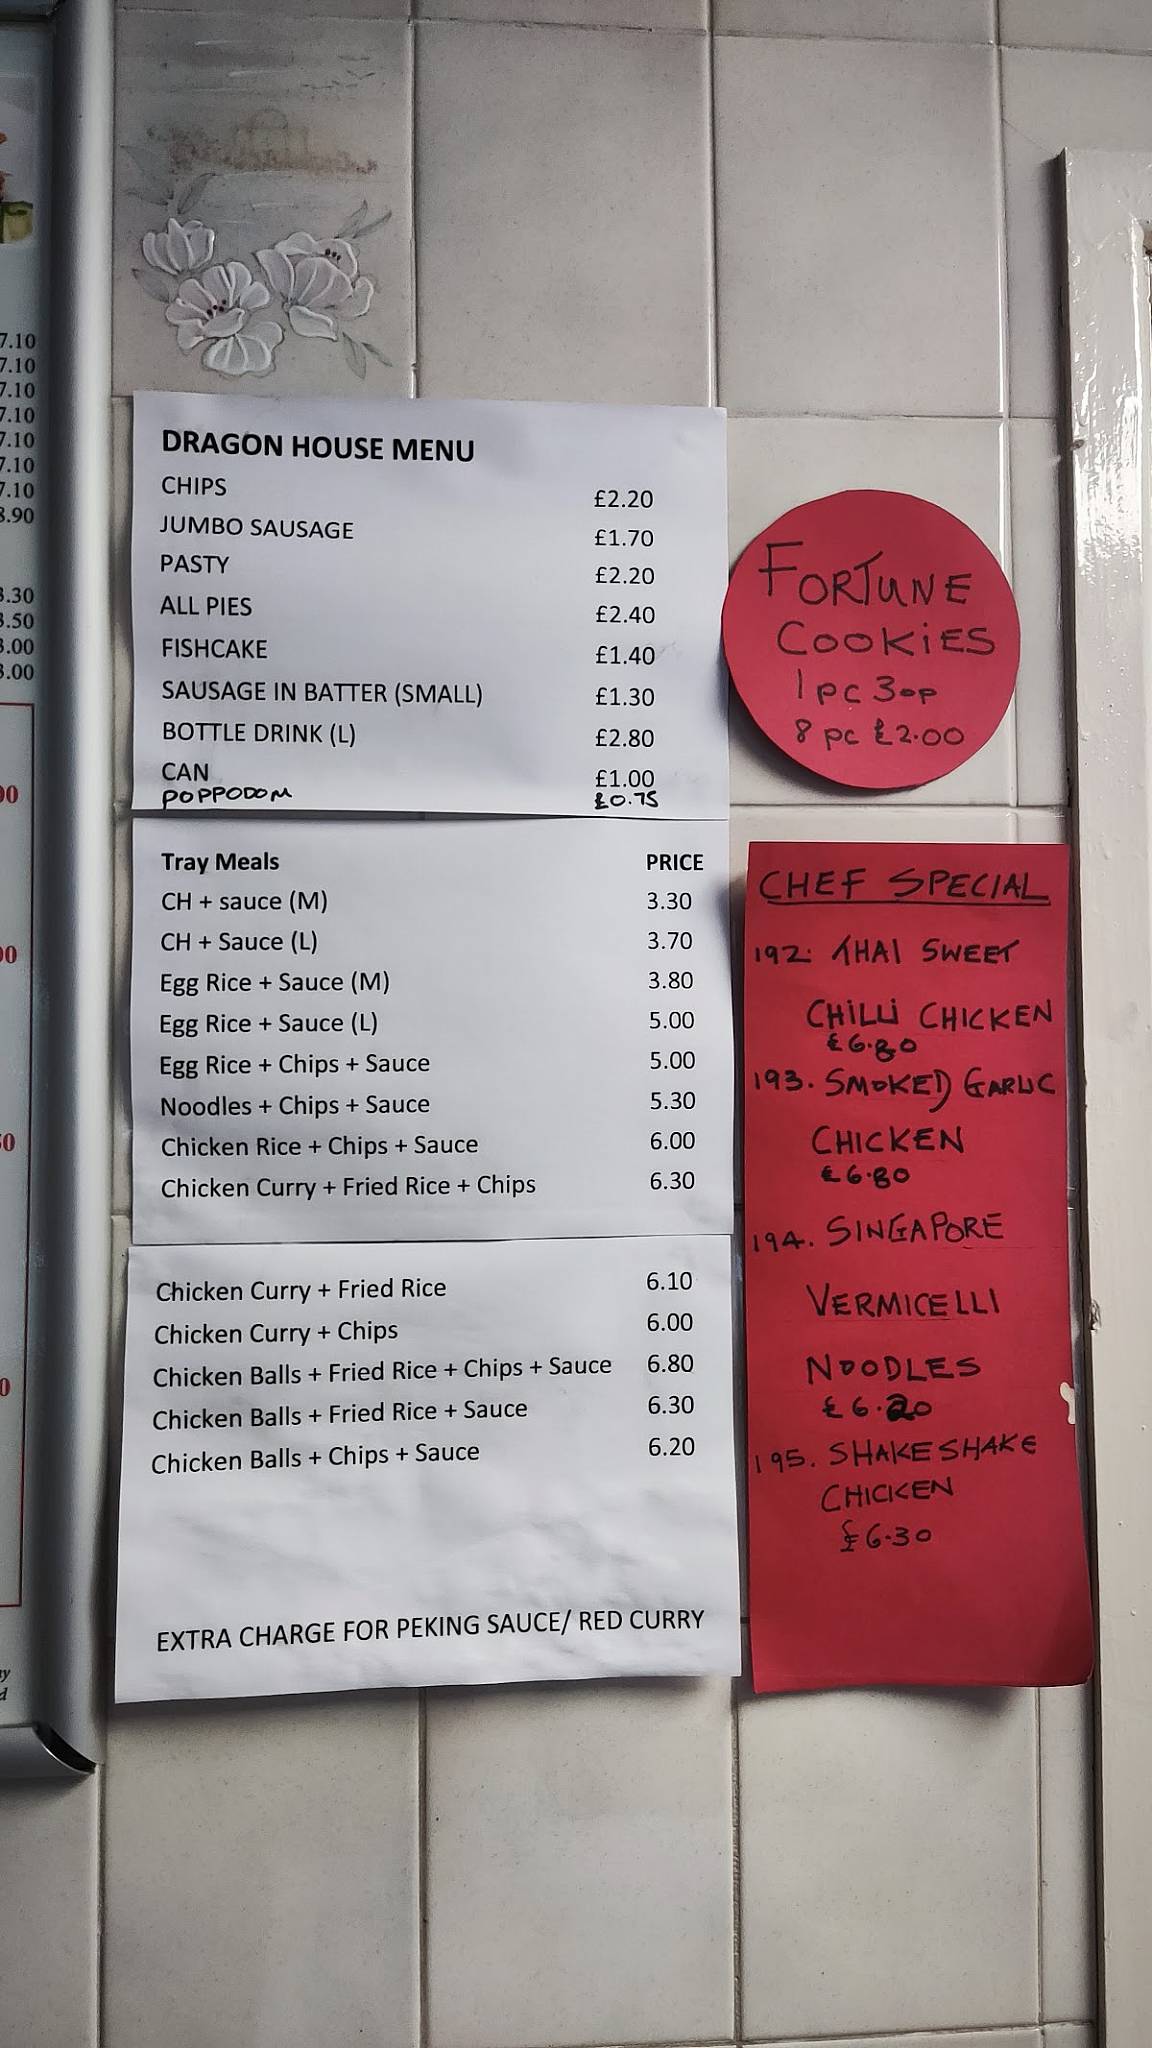 7.10
7.10
7.10
7.10
7.10
7.10
7.10
8.90
3.30
3.50
3.00
3.00
DRAGON HOUSE MENU
CHIPS £2.20
JUMBO SAUSAGE £1.70
PASTY £2.20
ALL PIES £2.40
FISHCAKE £1.40
SAUSAGE IN BATTER (SMALL) £1.30
BOTTLE DRINK (L) £2.80
CAN £1.00
POPPODOM £0.75
Tray Meals PRICE
CH + sauce (M) 3.30
CH + Sauce (L) 3.70
Egg Rice + Sauce (M) 3.80
Egg Rice + Sauce (L) 5.00
Egg Rice + Chips + Sauce 5.00
Noodles + Chips + Sauce 5.30
Chicken Rice + Chips + Sauce 6.00
Chicken Curry + Fried Rice + Chips 6.30
Chicken Curry + Fried Rice 6.10
Chicken Curry + Chips 6.00
Chicken Balls + Fried Rice + Chips + Sauce 6.80
Chicken Balls + Fried Rice + Sauce 6.30
Chicken Balls + Chips + Sauce 6.20
EXTRA CHARGE FOR PEKING SAUCE/ RED CURRY
FORTUNE
COOKiES
1 pc 30p
8 pc £2.00
CHEF SPECIAL
192. THAI SWEET
CHILLI CHICKEN
£6.80
193. SMOKED GARLIC
CHICKEN
£6.80
194. SINGAPORE
VERMICELLI
NOODLES
£6.20
195. SHAKESHAKE
CHICKEN
£6.30